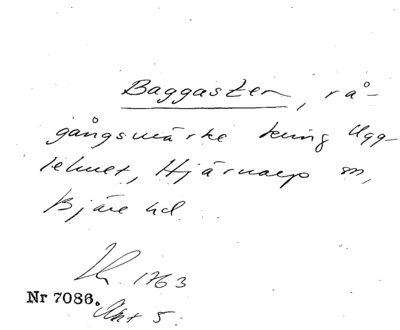 Baggasten, rå-
gångsmärke kring Ugg-
lehuet, Hjärnarp sn,
Bjäre hd.
1763
Nr 7086. Akt 5.